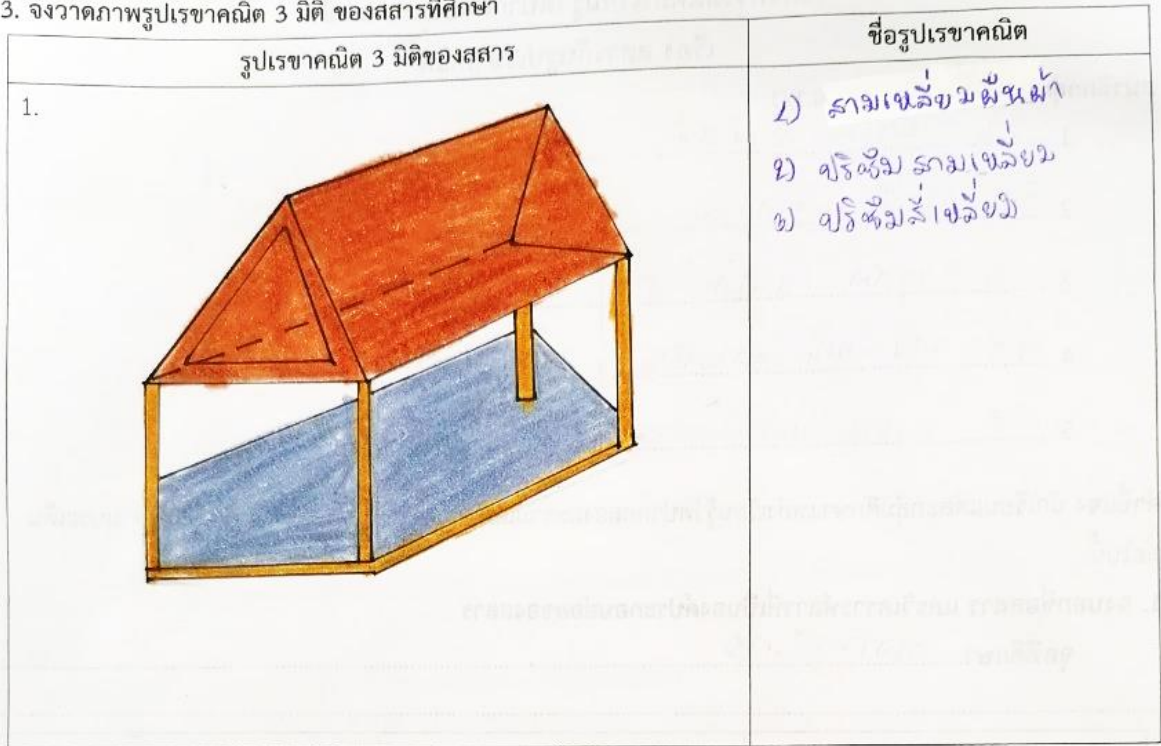 3. จงวาดภาพรูปเรขาคณิต 3 มิติ ของสสารที่ศึกษา
รูปเรขาคณิต 3 มิติของสสาร
ชื่อรูปเรขาคณิต
1.
1) สามเหลี่ยมผืนผ้า
2) ปริซึมสามเหลี่ยม
3) ปริซึมสี่เหลี่ยม